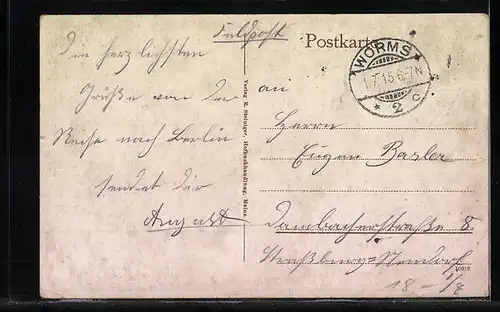 Feldpost
Postkarte
WORMS
1.7.15.6-7N
* 2 c
Die herzlichsten
Grüße von der
Reise nach Berlin
sendet dir
August
Verlag K. Steiniger, Hofbuchhandlung, Mainz.
an
Herrn
Eugen Basler
Dambacherstraße 8.
Straßburg=Neudorf
18-